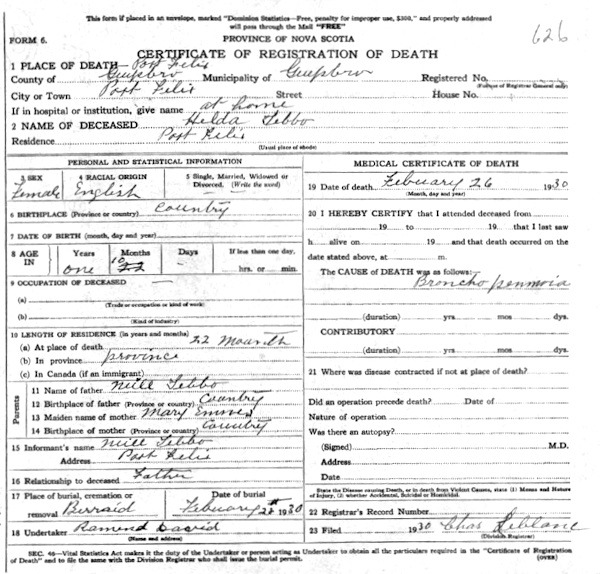 This form if placed in an envelope, marked "Dominion Statistics—Free, penalty for improper use, $300," and properly addressed
will pass through the Mail "FREE"
626
FORM 6. PROVINCE OF NOVA SCOTIA
CERTIFICATE OF REGISTRATION OF DEATH
1 PLACE OF DEATH— Port Felix
County of Guysbro Municipality of Guysbro Registered No.
(For use of Registrar General only)
City or Town Port Felix Street House No.
If in hospital or institution, give name at home
2 NAME OF DECEASED Helda Febbo
Residence Port Felix
(Usual place of abode)
PERSONAL AND STATISTICAL INFORMATION
3 SEX 4 RACIAL ORIGIN 5 Single, Married, Widowed or Divorced. (Write the word)
Female English
6 BIRTHPLACE (Province or country) Country
7 DATE OF BIRTH (month, day and year)
8 AGE IN Years Months Days If less than one day,
one 10 22 hrs. or min.
9 OCCUPATION OF DECEASED —
(a)
(Trade or occupation or kind of work)
(b)
(Kind of industry)
10 LENGTH OF RESIDENCE (in years and months)
(a) At place of death 22 Mounth
(b) In province province
(c) In Canada (if an immigrant)
Parents
11 Name of father Neill Febbo
12 Birthplace of father (Province or country) Country
13 Maiden name of mother Mary
14 Birthplace of mother (Province or country) Country
15 Informant's name Neill Febbo
Address Port Felix
16 Relationship to deceased Father
17 Place of burial, cremation or removal Date of burial
Berraid Febuary 1930
18 Undertaker Ramend
(Name and address)
MEDICAL CERTIFICATE OF DEATH
19 Date of death Febuary 26 1930
(Month, day and year)
20 I HEREBY CERTIFY that I attended deceased from
19 to 19 that I last saw
h alive on 19 and that death occurred on the
date stated above, at m.
The CAUSE OF DEATH was as follows:
Broncho penmoia
(duration) yrs. mos. dys.
CONTRIBUTORY
(duration) yrs. mos. dys.
21 Where was disease contracted if not at place of death?
Did an operation precede death? Date of
Nature of operation
Was there an autopsy?
(Signed) M.D.
Address
Date
State the Disease causing Death, or in death from Violent Causes, state (1) Means and Nature
of Injury, (2) whether Accidental, Suicidal or Homicidal.
22 Registrar's Record Number
23 Filed 1930 Chas Leblanc
(Division Registrar)
SEC. 46—Vital Statistics Act makes it the duty of the Undertaker or person acting as Undertaker to obtain all the particulars required in the "Certificate of Registration
of Death" and to file the same with the Division Registrar who shall issue the burial permit. (OVER)